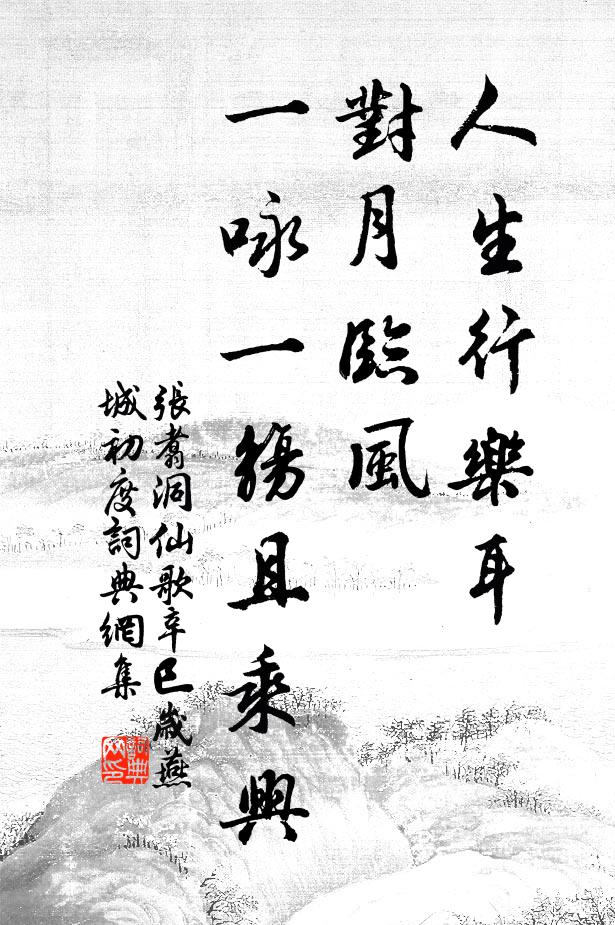 人生行樂耳
對月臨風
一咏一觴且乘興
張翥洞仙歌辛巳歲燕
城初度詞典網集
詞典
网印